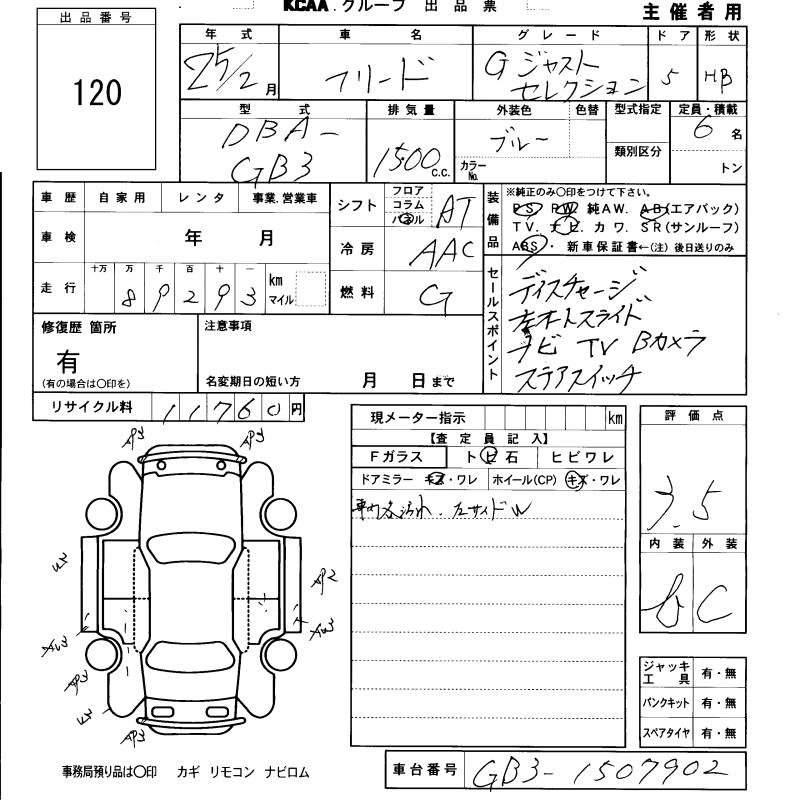 KCAA.グループ 出品票
主催者用
出品番号
120
年式 車名 グレード ドア 形状
25/2月 フリード Gジャストセレクション 5 HB
型式 排気量 外装色 色替 型式指定 定員・積載
DBA-GB3 1500c.c. ブルー カラーNo. 類別区分 6名 トン
車歴 自家用 レンタ 事業.営業車
車検 年 月
走行 十万 万 千 百 十 一 km マイル
8 9 2 9 3
シフト フロア コラム パネル AT
冷房 AAC
燃料 G
装備品
※純正のみ〇印をつけて下さい。
PS PW 純AW. AB(エアバック)
TV. ナビ カワ. SR(サンルーフ)
ABS・ 新車保証書←(注)後日送りのみ
セールスポイント
ディスチャージ
左オートスライド
ナビ TV Bカメラ
ステアスイッチ
修復歴 箇所
有
(有の場合は〇印を)
注意事項
名変期日の短い方 月 日まで
リサイクル料 11760円
現メーター指示 km
【査定員記入】
Fガラス トビ石 ヒビワレ
ドアミラー キズ・ワレ ホイール(CP) キズ・ワレ
車内各汚れ. 左サイドW
評価点
3.5
内装 外装
C
AP3 AP3
U3
AP2
AU3
AP3
U3
AP3
ジャッキ工具 有・無
パンクキット 有・無
スペアタイヤ 有・無
事務局預り品は〇印 カギ リモコン ナビロム
車台番号 GB3-1507902